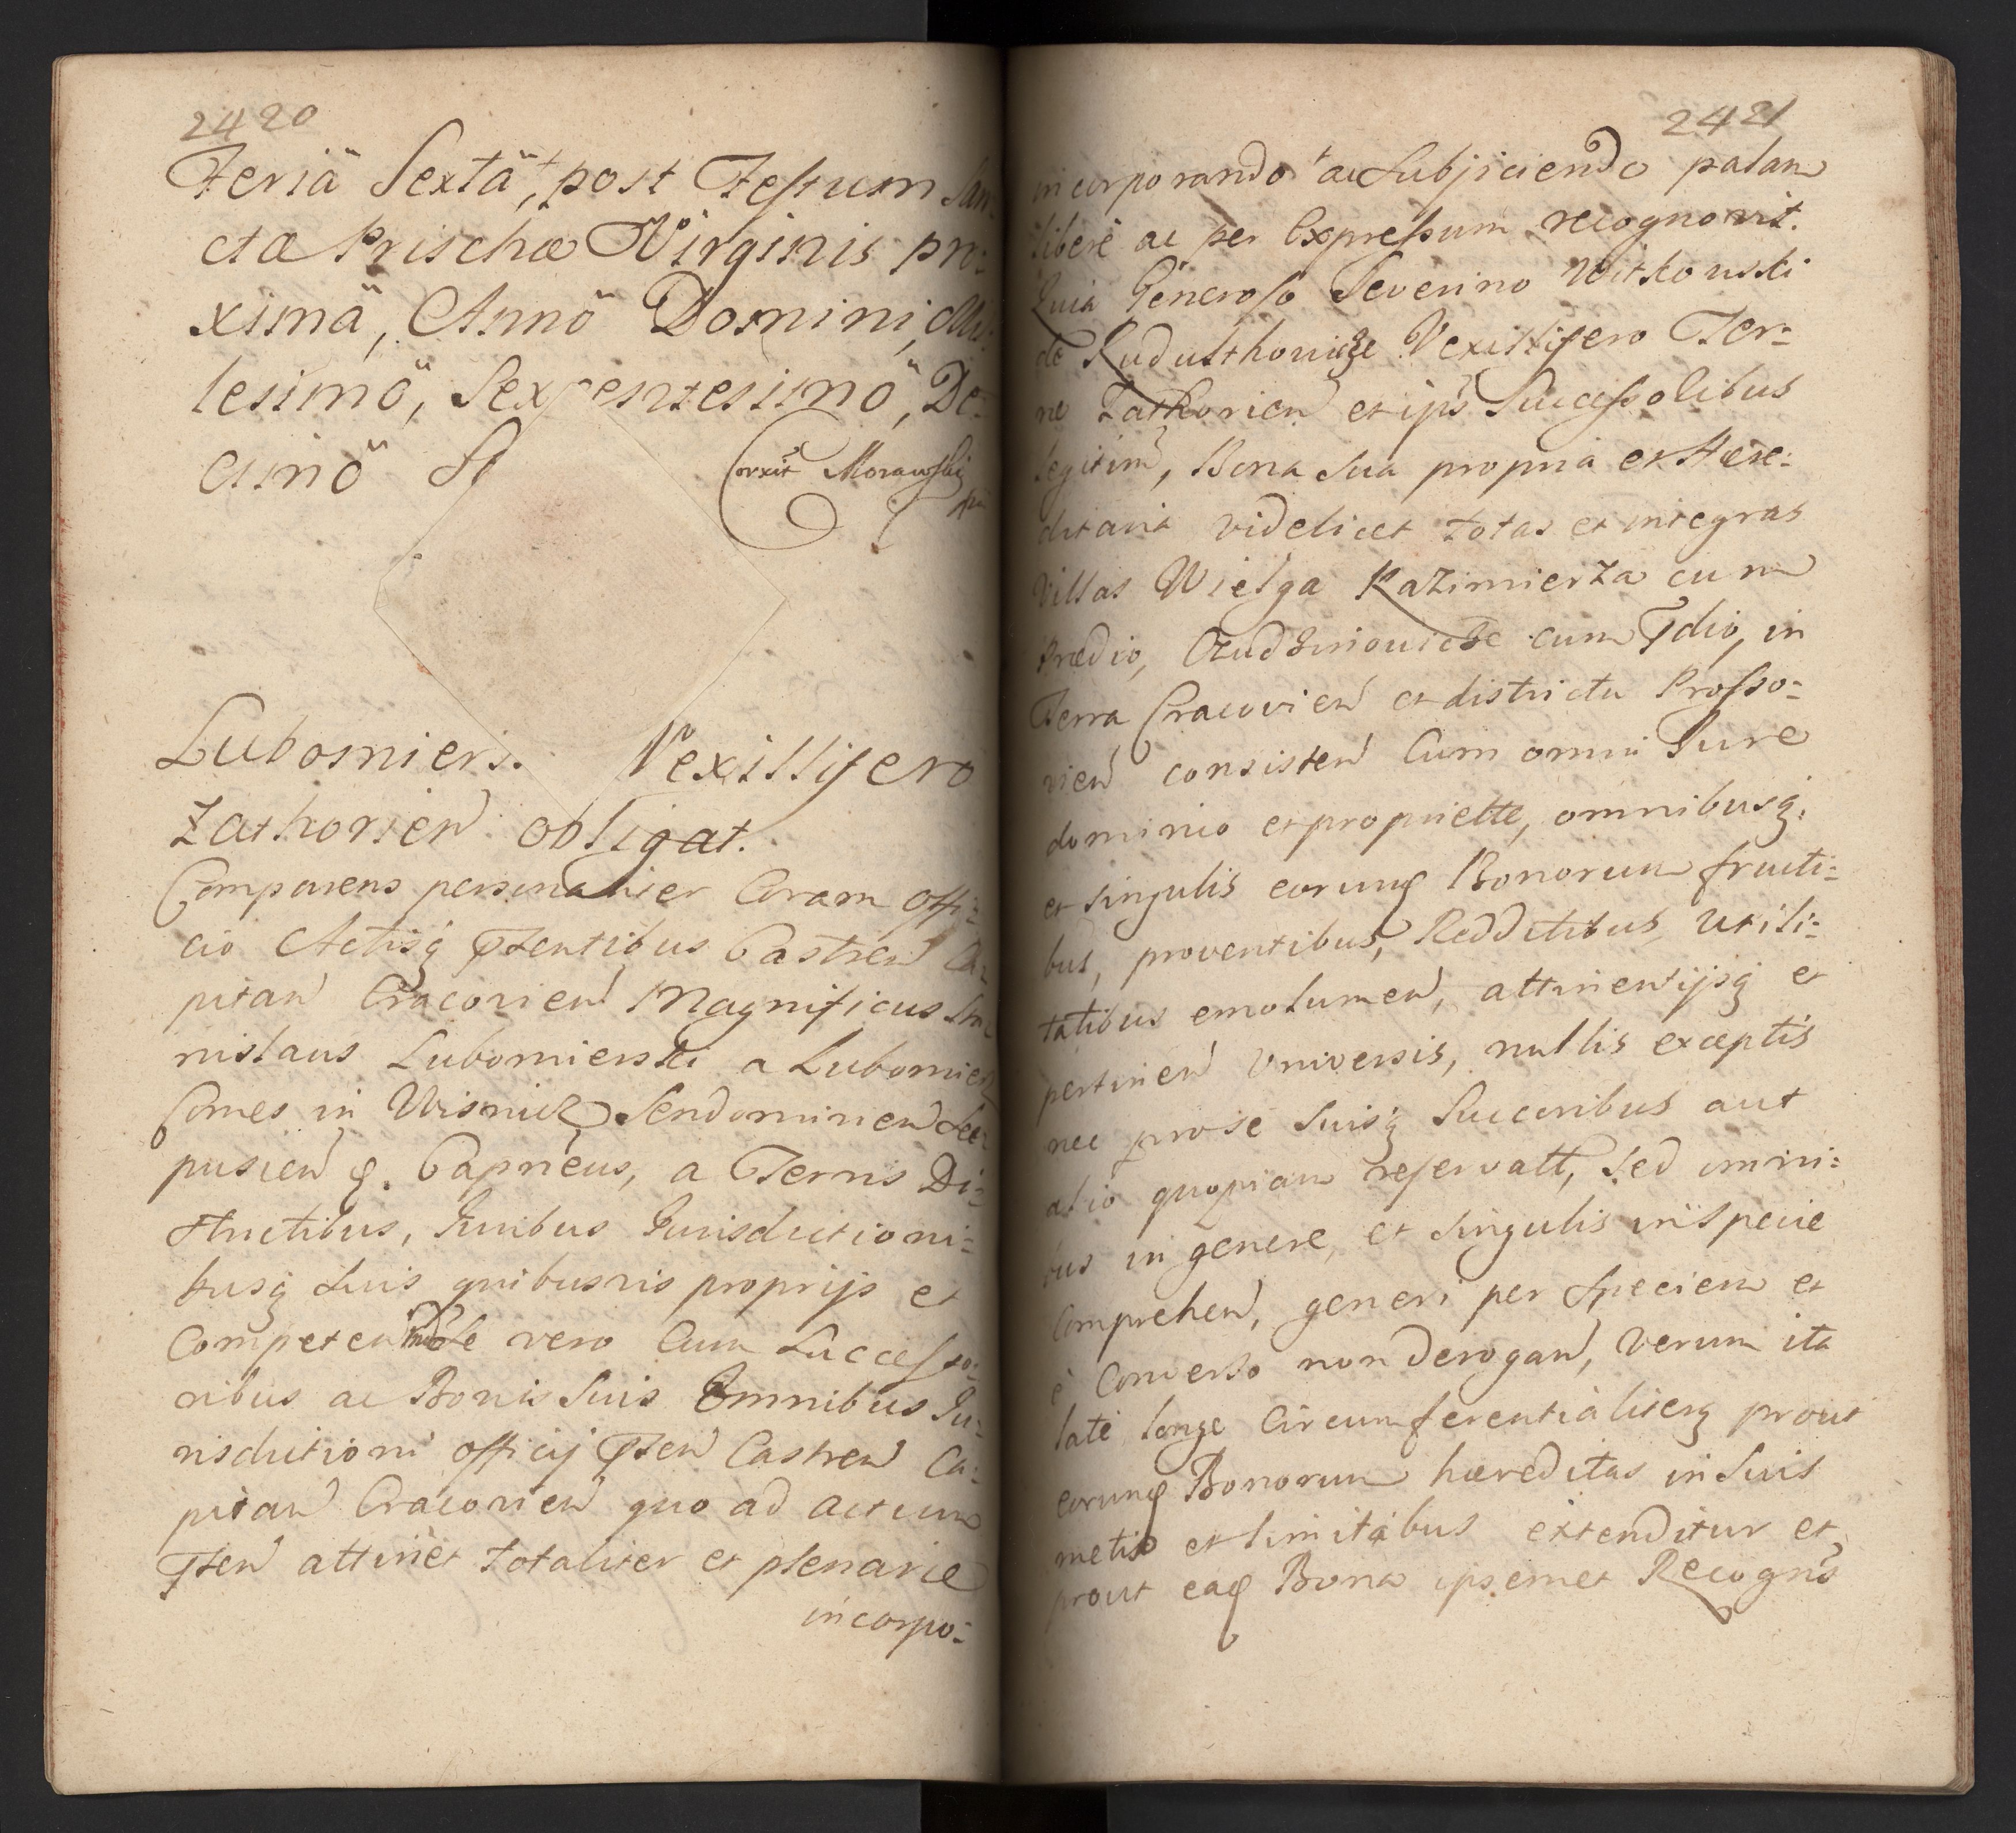 2420
Feriâ Sextâ, post Festum San-
ctæ Prischæ Virginis pro-
ximâ, Annô Domini, Mil-
lesimô, Sexcentesimô, De-
cimô
Corxit Morawski
Lubomiers. Vexillifero
Zathorien obligat.
Comparens personaliter Coram Offi-
cio Actisq pntibus Castren Ca-
pitan Cracovien Magnificus Sta-
nislaus Lubomierski a Lubomierz
Comes in Wisnicz Sendomirien
pusien q. Capneus, a Terris Di-
strictibus, Iuribus Iurisdictioni-
busq suis quibusvis proprijs et
Competen Inde se vero Cum Successo-
ribus ac Bonis Suis Omnibus Iu-
risdictioni officij pnten Castren Ca-
pitan Cracovien quo ad actum
pnten attinet totaliter et plenarie
incorpo-
2421
incorporando ac Subjiciendo palam
libere ac per Expressum recognovit.
Quia Generoso Severino Witkowski
de Rudulthowicze Vexillifero Ter-
ræ Zathorien et ips Successolibus
legitim, Bona Sua propria et Hære-
ditaria videlicet totas et integras
Villas Wielga Kazimierza cum
Prædio, Czudzinowicze cum pdio, in
Terra Cracovien et districtu Prosso-
vien consisten Cum omni Iure
dominio et propriette, omnibusq.
et singulis eorunq Bonorum fructi-
bus, proventibus, Redditibus, utili-
tatibus emolumen, attinentijsq et
pertinen Universis, nullis exceptis
nec pro se Suisq Succoribus aut
alio quopiam reservatt, Sed omni-
bus in genere, et singulis in specie
Comprehen, generi per Speciem et
è Converso non derogan, verum ita
late longe Circumferentialiterq prout
eorunq Bonorum hæreditas in Suis
metis et limitibus extenditur et
prout eaq Bona ipsemet Recogns